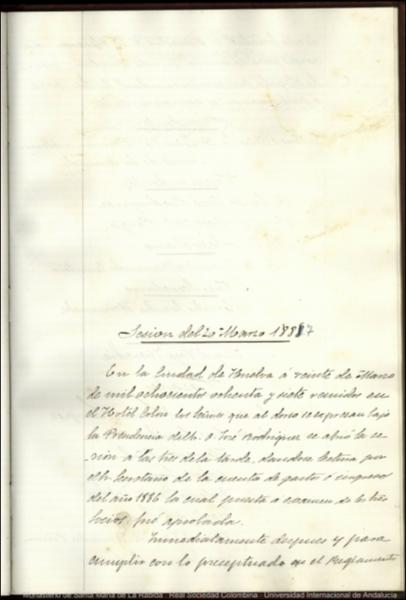 Sesion del 20 Marzo 1887
En la Ciudad de Huelva á veinte de Marzo
de mil ochocientos ochenta y siete reunidos en
el Hotel Colon los Socios que al dorso se expresan bajo
la Presidencia del Sr. D. José Rodriguez se abrió la se-
sion á las tres de la tarde, dandose lectura por
el Sr. Secretario de la cuenta de gastos é ingresos
del año 1886 la cual puesta a examen de los Sres
Socios fué aprobada.
Inmediatamente despues y para
cumplir con lo preceptuado en el Reglamento
Monasterio de Santa María de La Rábida Real Sociedad Colombina Universidad Internacional de Andalucía